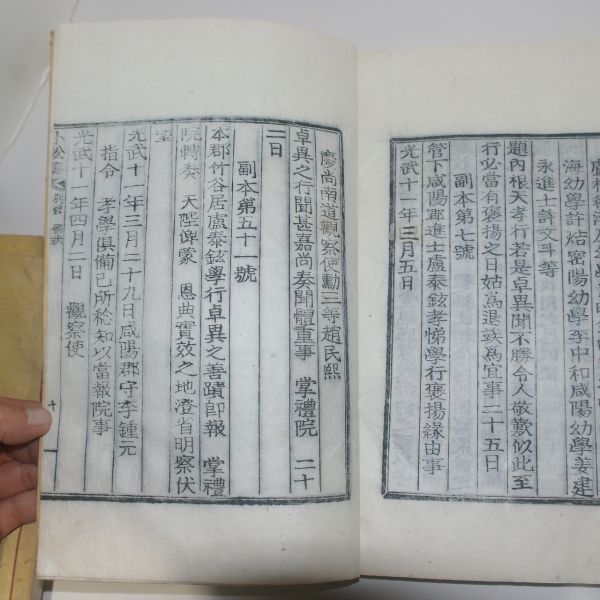 海幼學許焅密陽幼學李中和咸陽幼學姜建
永進士許文斗等
題內根天孝行若是卓異聞不勝令人敬歎似此至
行必當有褒揚之日姑為退竢為宜事二十五日
副本第七號
管下咸陽郡進士盧泰鉉孝悌學行褒揚緣由事
光武十一年三月五日
慶尚南道觀察使勳三等趙民熙
卓異之行聞甚嘉尚奏聞體重事 掌禮院 二十
二日
副本第五十一號
本郡竹谷居盧泰鉉學行卓異之善蹟卽報 掌禮
院轉奏 天陛俾蒙 恩典實效之地澄省明察伏
望
光武十一年三月二十九日咸陽郡守李鍾元
指令 孝學俱備已所稔知以當報院事
光武十一年四月二日 觀察使
小松集
十一